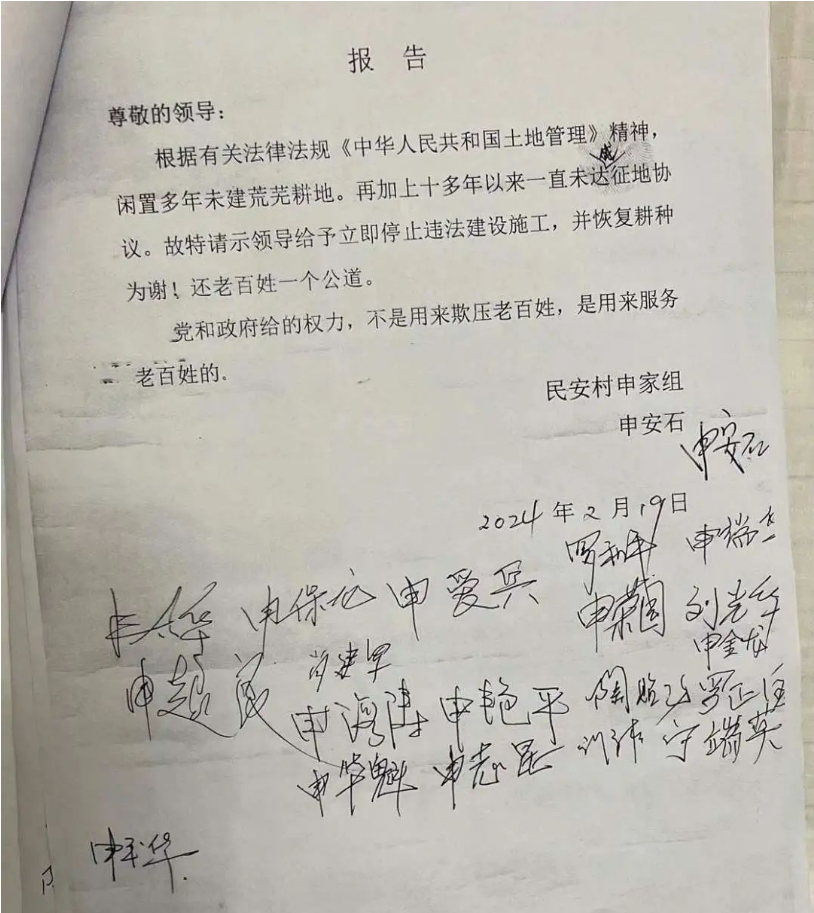 报 告
尊敬的领导：
根据有关法律法规《中华人民共和国土地管理》精神，
闲置多年未建荒芜耕地。再加上十多年以来一直未达成征地协
议。故特请示领导给予立即停止违法建设施工，并恢复耕种
为谢！还老百姓一个公道。
党和政府给的权力，不是用来欺压老百姓，是用来服务
老百姓的。
民安村申家组
申安石
申安石
2024年2月19日
申瑞
申保龙 申爱兵 申荣国 刘光华
申金龙
肖建军
申超民
申艳平
申华魁 申志昆 宁瑞英
申玉华